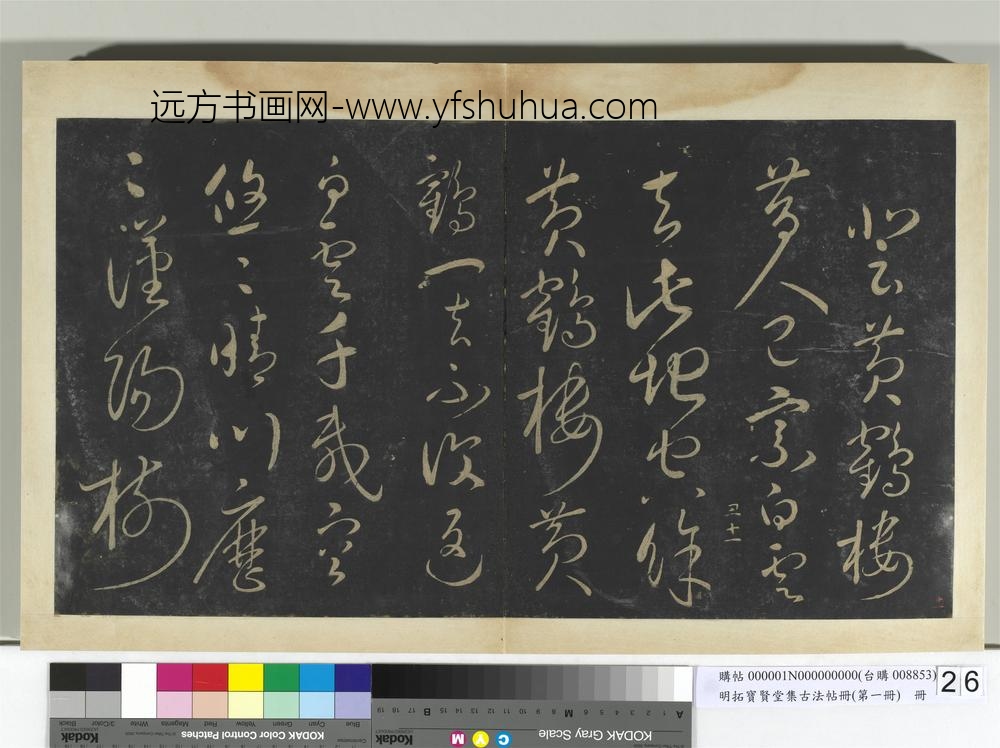 远方书画网-www.yfshuhua.com
登黄鶴樓
昔人已乘白雲
去此地空餘
黄鶴樓黄
鶴一去不復返
白雲千載空
悠〻晴川歷
〻漢陽樹
十一
購帖 000001N000000000(台購 008853)
明拓寶賢堂集古法帖冊(第一冊) 冊
26
Blue Cyan Green Yellow Red Magenta White 3/Color Black
KODAK Color Control Patches
Kodak
A 1 2 3 4 5 6 M 8 9 10 11 12 13 14 15 B 17 18 19
KODAK Gray Scale
C Y M
Kodak